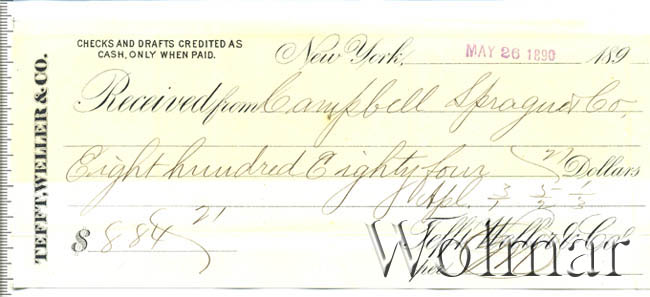 TEFFT, WELLER & CO.
CHECKS AND DRAFTS CREDITED AS
CASH, ONLY WHEN PAID.
New York, MAY 26 1890 189
Received from Campbell Sprague & Co,
Eight hundred Eighty four 21 Dollars
Apl.
$ 884 21
Tefft Weller & Co
per
Wolmar